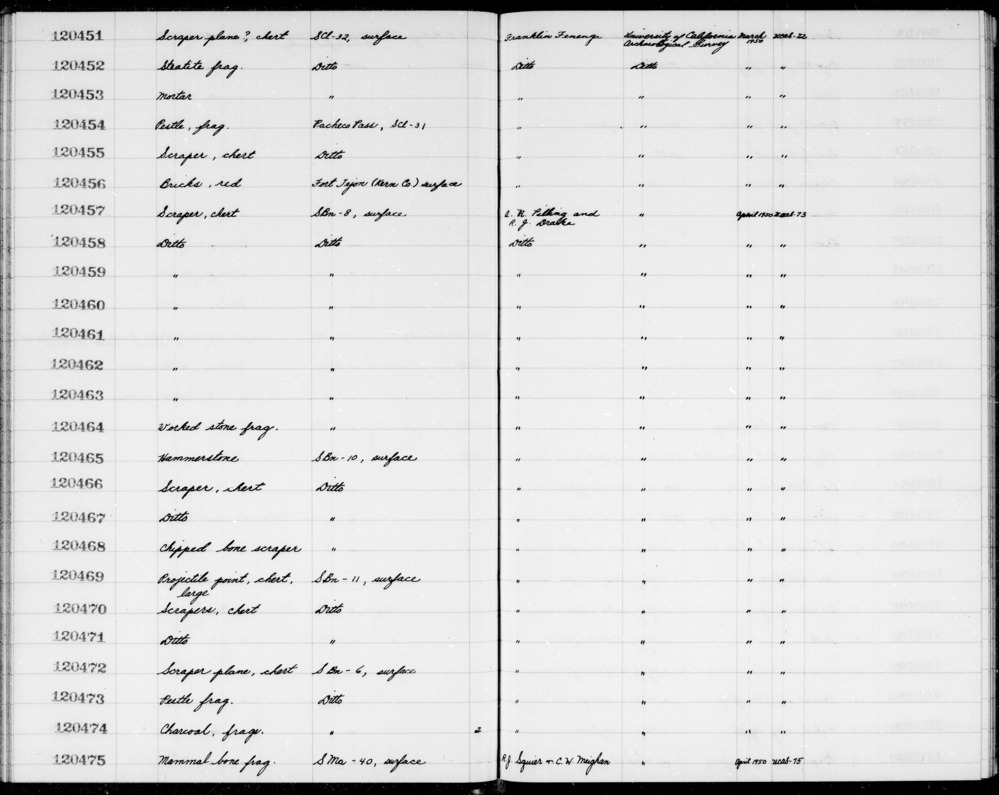 120451 Scraper plane?, chert SCl-32, surface Franklin Fenenga University of California March UCAS-22
Archaeological Survey 1950
120452 Steatite frag. Ditto Ditto Ditto " "
120453 Mortar " " " " "
120454 Pestle, frag. Pacheco Pass, SCl-31 " " " "
120455 Scraper, chert Ditto " " " "
120456 Bricks, red Fort Tejon (Kern Co) surface " " " "
120457 Scraper, chert SBn-8, surface A. R. Pilling and " April 1950 UCAS-73
R. J. Drake
120458 Ditto Ditto Ditto " " "
120459 " " " " " "
120460 " " " " " "
120461 " " " " " "
120462 " " " " " "
120463 " " " " " "
120464 Worked stone frag. " " " " "
120465 Hammerstone SBn-10, surface " " " "
120466 Scraper, chert Ditto " " " "
120467 Ditto " " " " "
120468 Chipped bone scraper " " " " "
120469 Projectile point, chert, SBn-11, surface " " " "
large
120470 Scrapers, chert Ditto " " " "
120471 Ditto " " " " "
120472 Scraper plane, chert SBn-6, surface " " " "
120473 Pestle frag. Ditto " " " "
120474 Charcoal, frags. " 2 " " " "
120475 Mammal bone frag. SMa-40, surface R.J. Squier & C.W. Meighan " April 1950 UCAS-75